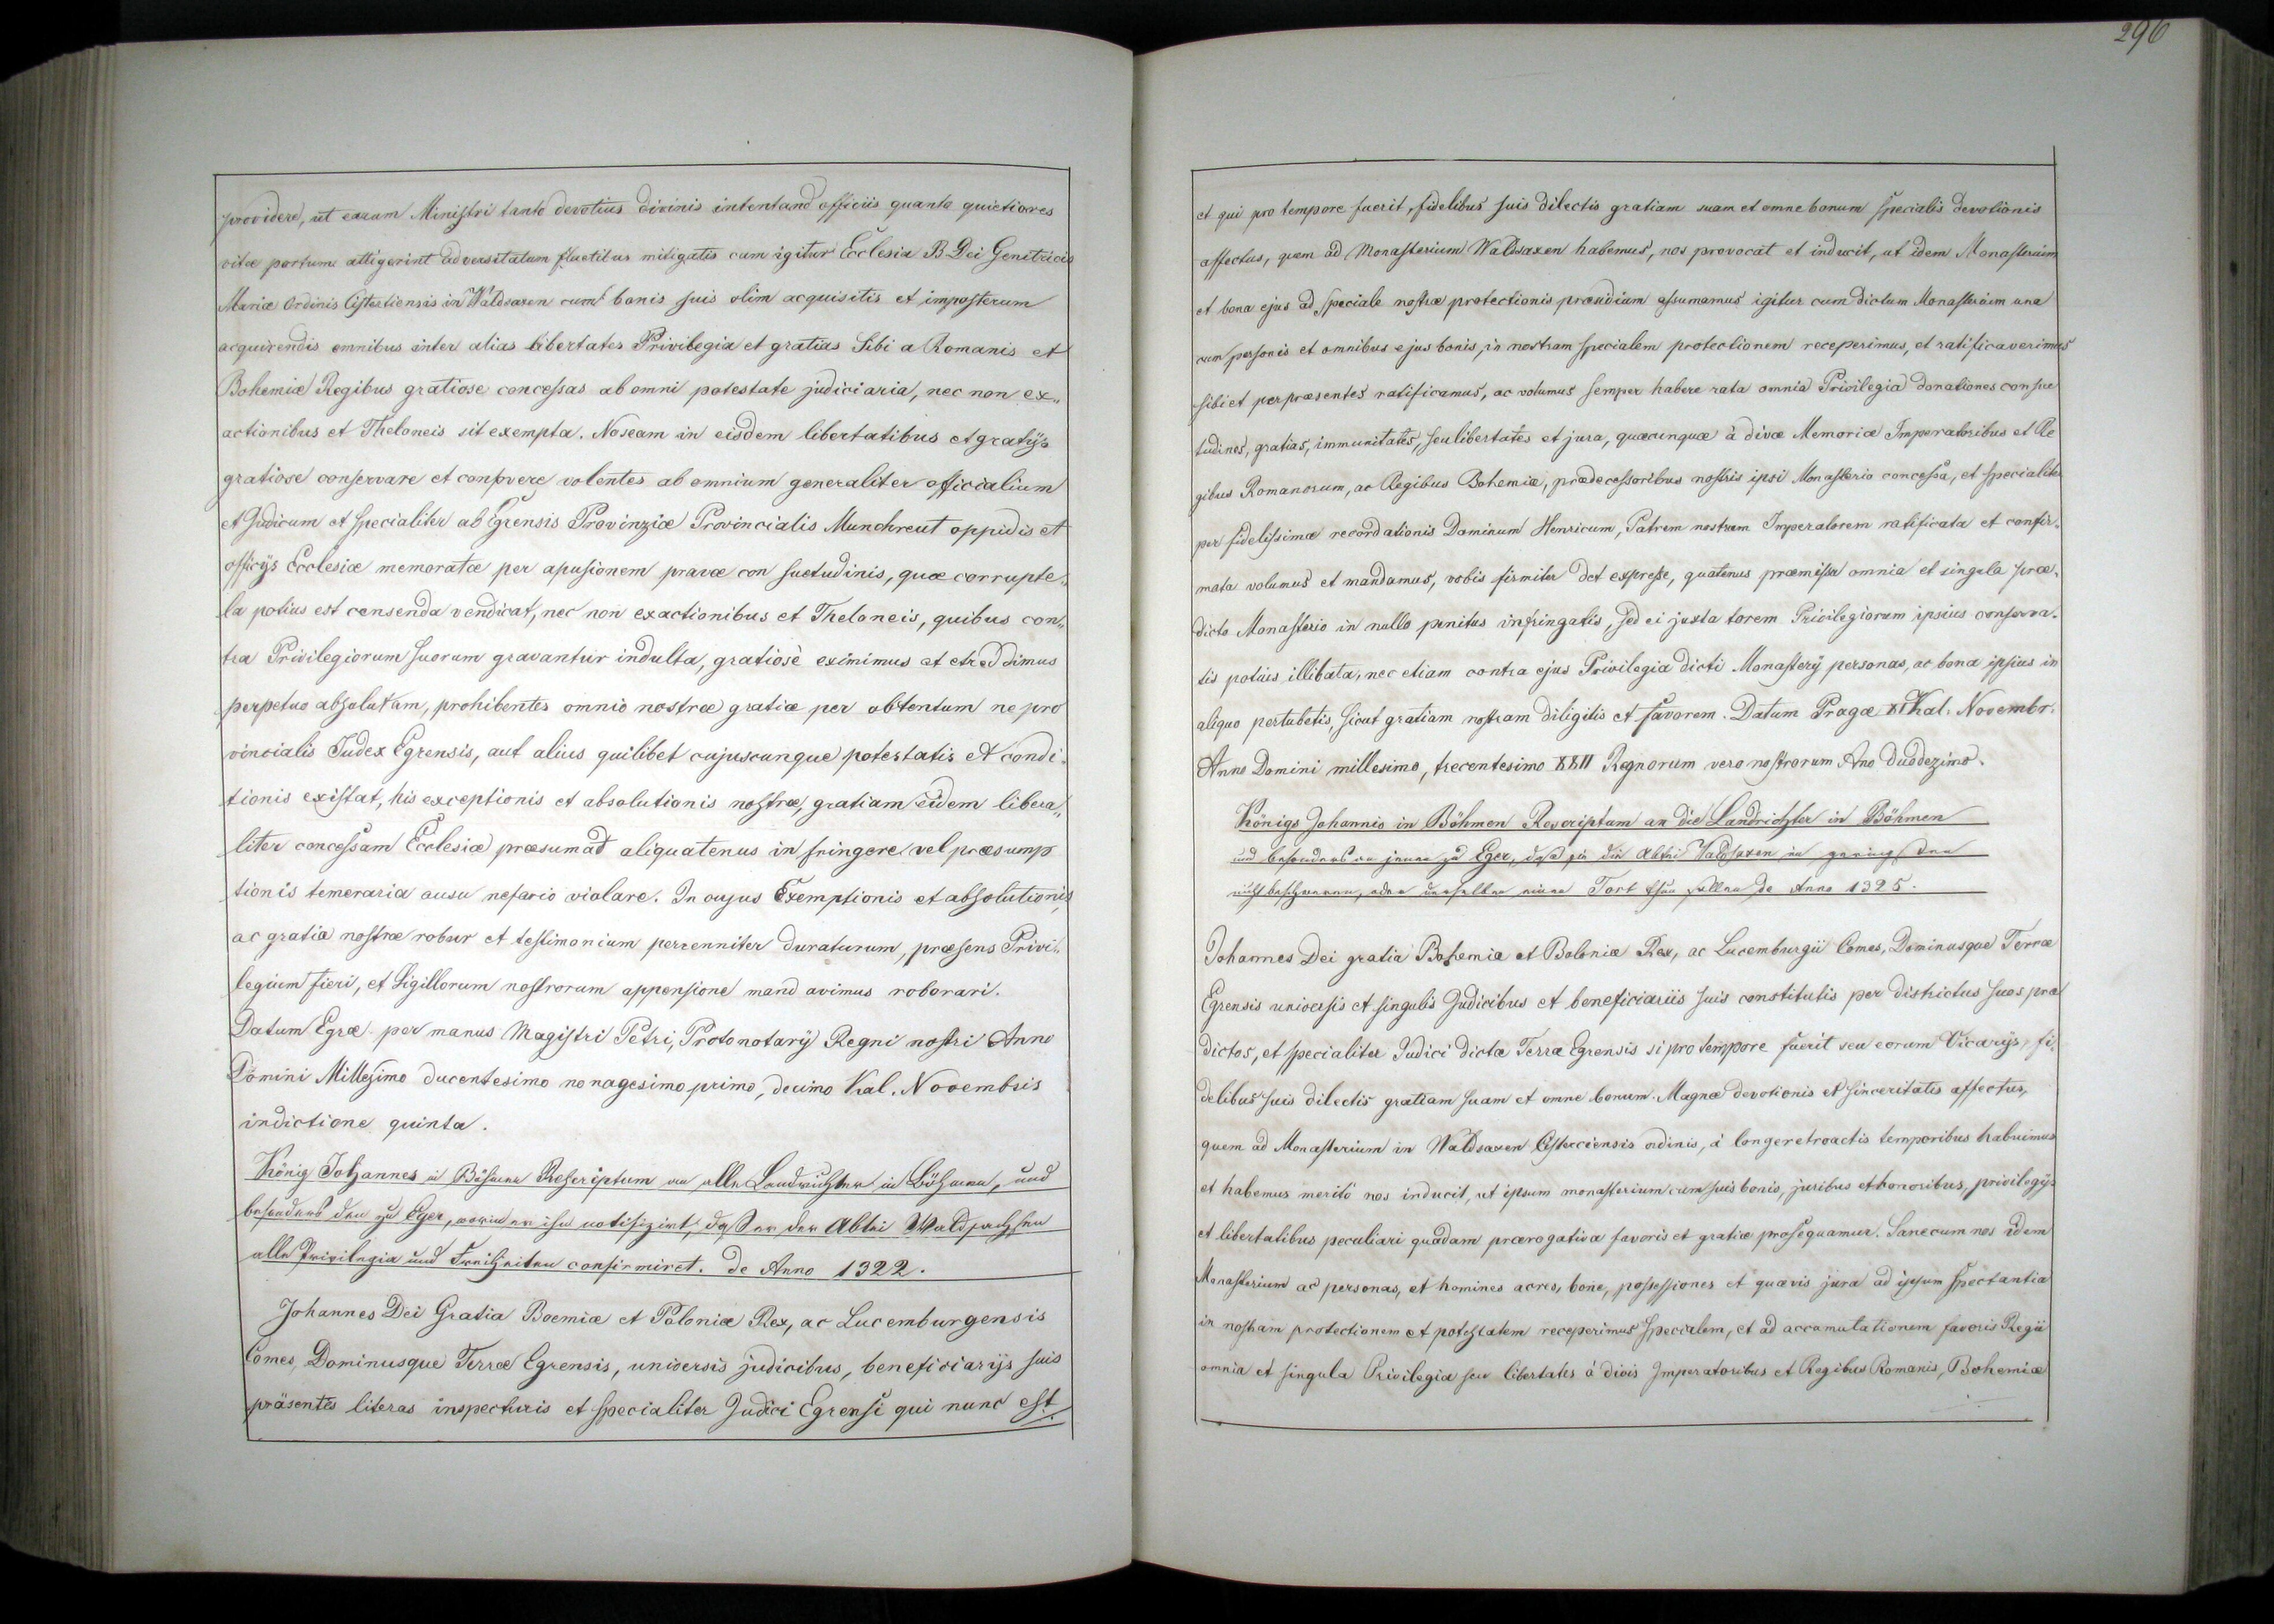 providere, ut earum Ministri tanto devotius divinis intentand officiis quanto quietiores
vitæ portum attigerint adversitatum fluctibus mitigatis cum igitur Ecclesia B Dei Genitricis
Mariæ Ordinis Cistertiensis in Waldsaxen cum bonis suis olim acquisitis et imposterum
acquirendis omnibus inter alias libertates Privilegia et gratias Sibi a Romanis et
Bohemiæ Regibus gratiose concessas ab omni potestate judiciaria, nec non ex„
actionibus et Theloneis sit exempta. Noseam in eisdem libertatibus et gratijs
gratiose conservare et confovere volentes ab omnium generaliter officialium
et Judicum et specialiter ab Egrensis Provinziæ Provincialis Munchreut oppidis et
officijs Ecclesiæ memoratæ per apusionem pravæ con suetudinis, quæ corrupte„
la potius est censenda vendicat, nec non exactionibus et Theloneis, quibus con„
tra Privilegiorum suorum gravantur indulta, gratiosè eximimus et etreddimus
perpetuo absolutam, prohibentes omnio nostræ gratiæ per obtentum ne pro
vincialis Judex Egrensis, aut alius quilibet cujuscunque potestatis et condi„
tionis existat, his exceptionis et absolutionis nostræ, gratiam eidem libera„
liter concessam Ecclesiæ præsumat aliquatenus in fringere vel præsump
tionis temeraria ausu nefario violare. In cujus Exemptionis et absolutionis
ac gratia nostræ robur et testimonium perrenniter duraturum, præsens Privi„
legium fieri, et Sigillorum nostrorum appensione mand avimus roborari.
Datum Egræ per manus Magistri Petri, Protonotarÿ Regni nostri Anno
Domini Millesimo ducentesimo nonagesimo primo, decimo Kal. Novembris
indictione quinta.
König Johannes in Böhmen Rescriptum an alle Landrichter in Böhmen, und
besonders den zu Eger, worin er ihn notifizirt, daß er der Abtei Waldsachsen
alle Privilegia und Freiheiten confirmiret. de Anno 1322.
Johannes Dei Gratia Boemiæ et Poloniæ Rex, ac Lucemburgensis
Comes, Dominusque Terræ Egrensis, universis judicibus, beneficiarÿs suis
präsentes literas inspecturis et specialiter Judici Egrensi qui nunc est
296
et qui pro tempore fuerit, fidelibus suis dilectis gratiam suam et omne bonum specialis devotionis
affectus, quem ad Monasterium Waldsaxen habemus, nos provocat et inducit, ut idem Monasterium
et bona ejus ad speciale nostræ protectionis præsidium assumamus igitur cum dictum Monasterium una
cum personis et omnibus ejus bonis, in nostram specialem protectionem receperimus, et ratificaverimus
sibi et per præsentes ratificamus, ac volumus semper habere rata omnia Privilegia donationes consue
tudines, gratias, immunitates, seu libertates et jura, quæcunquæ à divæ Memoriæ Imperatoribus et Re
gibus Romanorum, ac Regibus Bohemiæ, prædecessoribus nostris ipsi Monasterio concessa, et specialiter
per fidelissimæ recordationis Dominum Henricum, Patrem nostrum Imperatorem ratificata et confir„
mata volumus et mandamus, vobis firmiter det expresse, quatenus præmissa omnia et singula præ„
dicto Monasterio in nullo penitus infringatis, sed ei juxta torem Privilegiorum ipsius conserva„
tis potuis illibata, nec etiam contra ejus Privilegia dicti Monasterÿ personas, ac bona ipsius in
aliquo pertubetis, sicut gratiam nostram diligitis et favorem. Datum Pragæ XI Kal. Novembr.
Anno Domini millesimo, trecentesimo XXII Regnorum vero nostrorum Ano duodezimo.
Königs Johannis in Böhmen Rescriptum an die Landrichter in Böhmen
und besonders an jenen zu Eger, daß sie die Abtei Waldsaxen im geringsten
nicht beschweren, oder derselben einen Tort thun sollen de Anno 1325.
Johannes Dei gratia Bohemiæ et Boloniæ Rex, ac Lucemburgii Comes, Dominusque Terræ
Egrensis universis et singulis Judicibus et beneficiariis suis constitutis per districtus suos præ
dictos, et specialiter Judici dictæ Terræ Egrensis si pro tempore fuerit seu eorum Vicarÿs, fi„
delibus suis dilectis gratiam suam et omne bonum. Magnæ devotionis et sinceritatis affectus,
quem ad Monasterium in Waldsaxen Cisterciensis ordinis, à longe retroactis temporibus habuimus
et habemus meritò nos inducit, ut ipsum monasterium cum suis bonis, juribus et honoribus, privilegÿs
et libertatibus peculiari quadam prærogativa favoris et gratiæ prosequamur. Sane cum nos idem
Monasterium ac personas, et homines acres, bone, possessiones et quævis jura ad ipsum spectantia
in nostram protectionem et potestatem receperimus specialem, et ad accumulationem favoris Regii
omnia et singula Privilegia seu libertates à divis Imperatoribus et Regibus Romanis, Bohemiæ